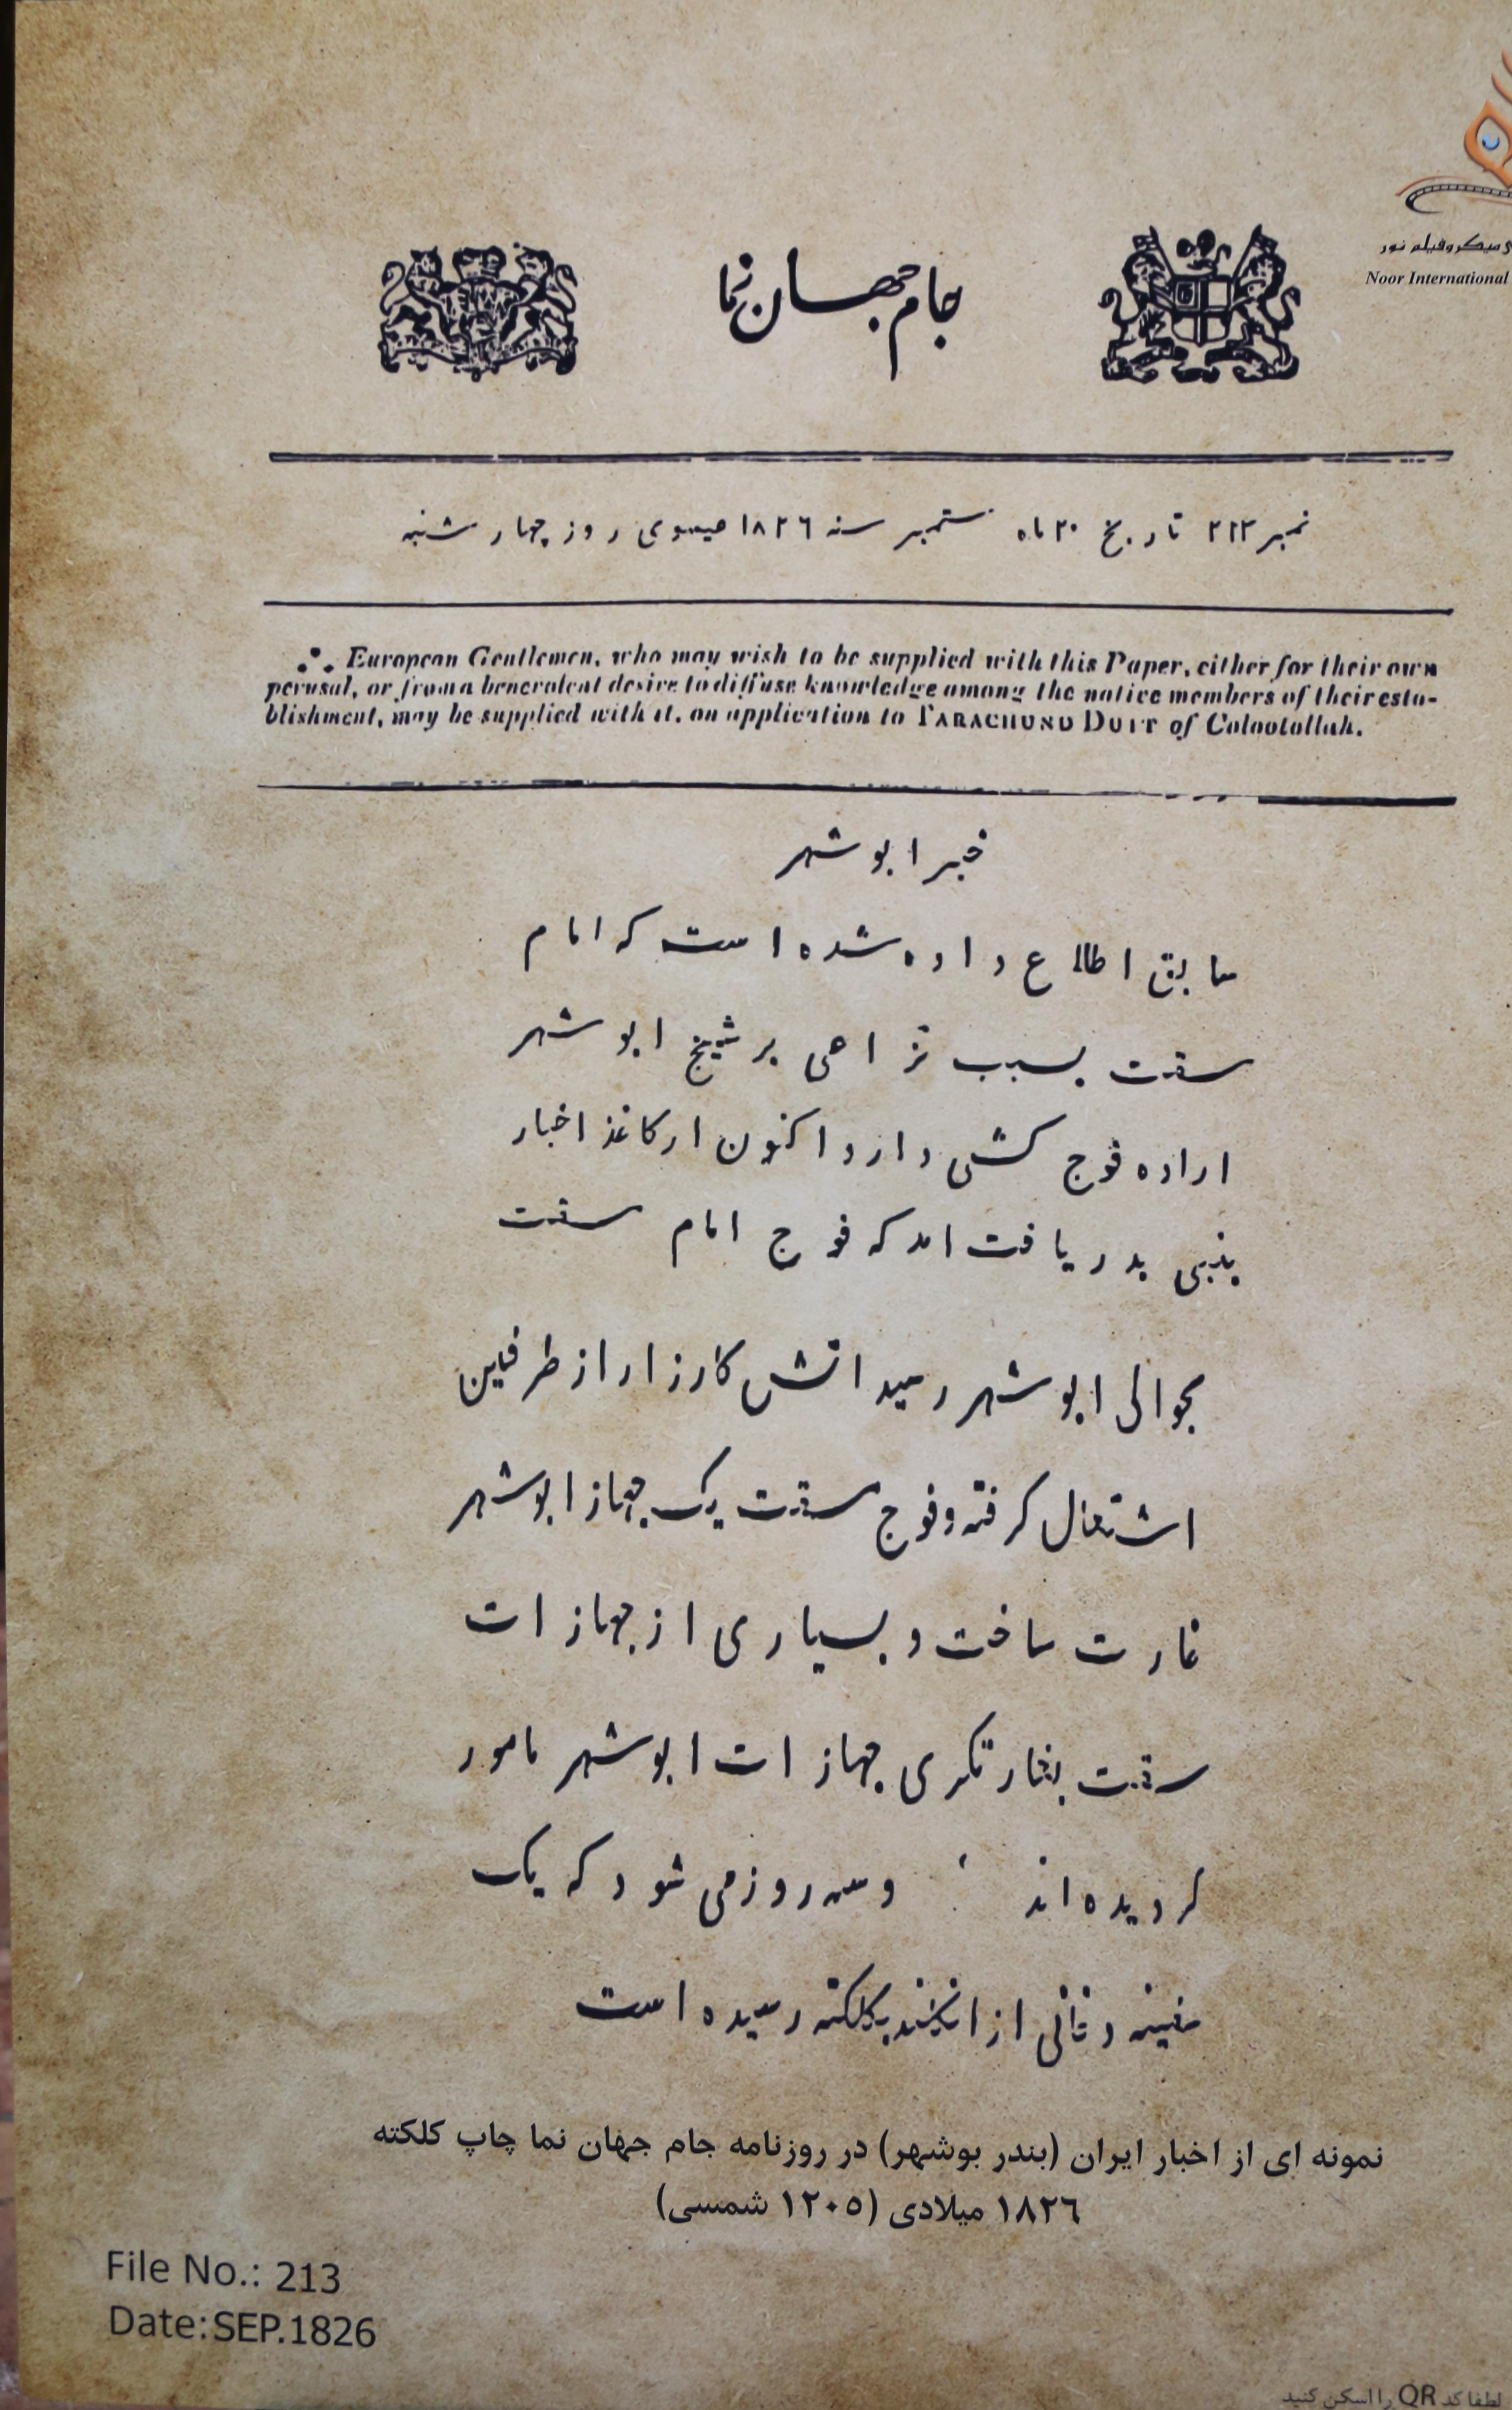 ی میکروفیلم نور
Noor International
جام جهان نما
نمبر ۲۱۳ تاریخ ۲۰ ماه ستمبر سنه ۱۸۲۶ عیسوی روز چهار شنبه
European Gentlemen, who may wish to be supplied with this Paper, either for their own
perusal, or from a benevolent desire to diffuse knowledge among the native members of their esta-
blishment, may be supplied with it, on application to TARACHUND DUTT of Colootollah.
خبر ابوشهر
سابق اطلاع داده شده است که امام
مسقت بسبب نزاعی بر شیخ ابوشهر
اراده فوج کشی دارد اکنون از کاغذ اخبار
بنبی بدریافت امد که فوج امام مسقت
بحوالی ابوشهر رسید اتش کارزار از طرفین
اشتعال کرفته و فوج مسقت یک جهاز ابوشهر
غارت ساخت و بسیاری از جهازات
مسقت بغارتکری جهازات ابوشهر مامور
کردیده اند و سه روز می شود که یک
سفینه دخانی از انکلند بکلکته رسیده است
نمونه ای از اخبار ایران (بندر بوشهر) در روزنامه جام جهان نما چاپ کلکته
۱۸۲۶ میلادی (۱۲۰۵ شمسی)
File No.: 213
Date:SEP.1826
لطفا کد QR را اسکن کنید